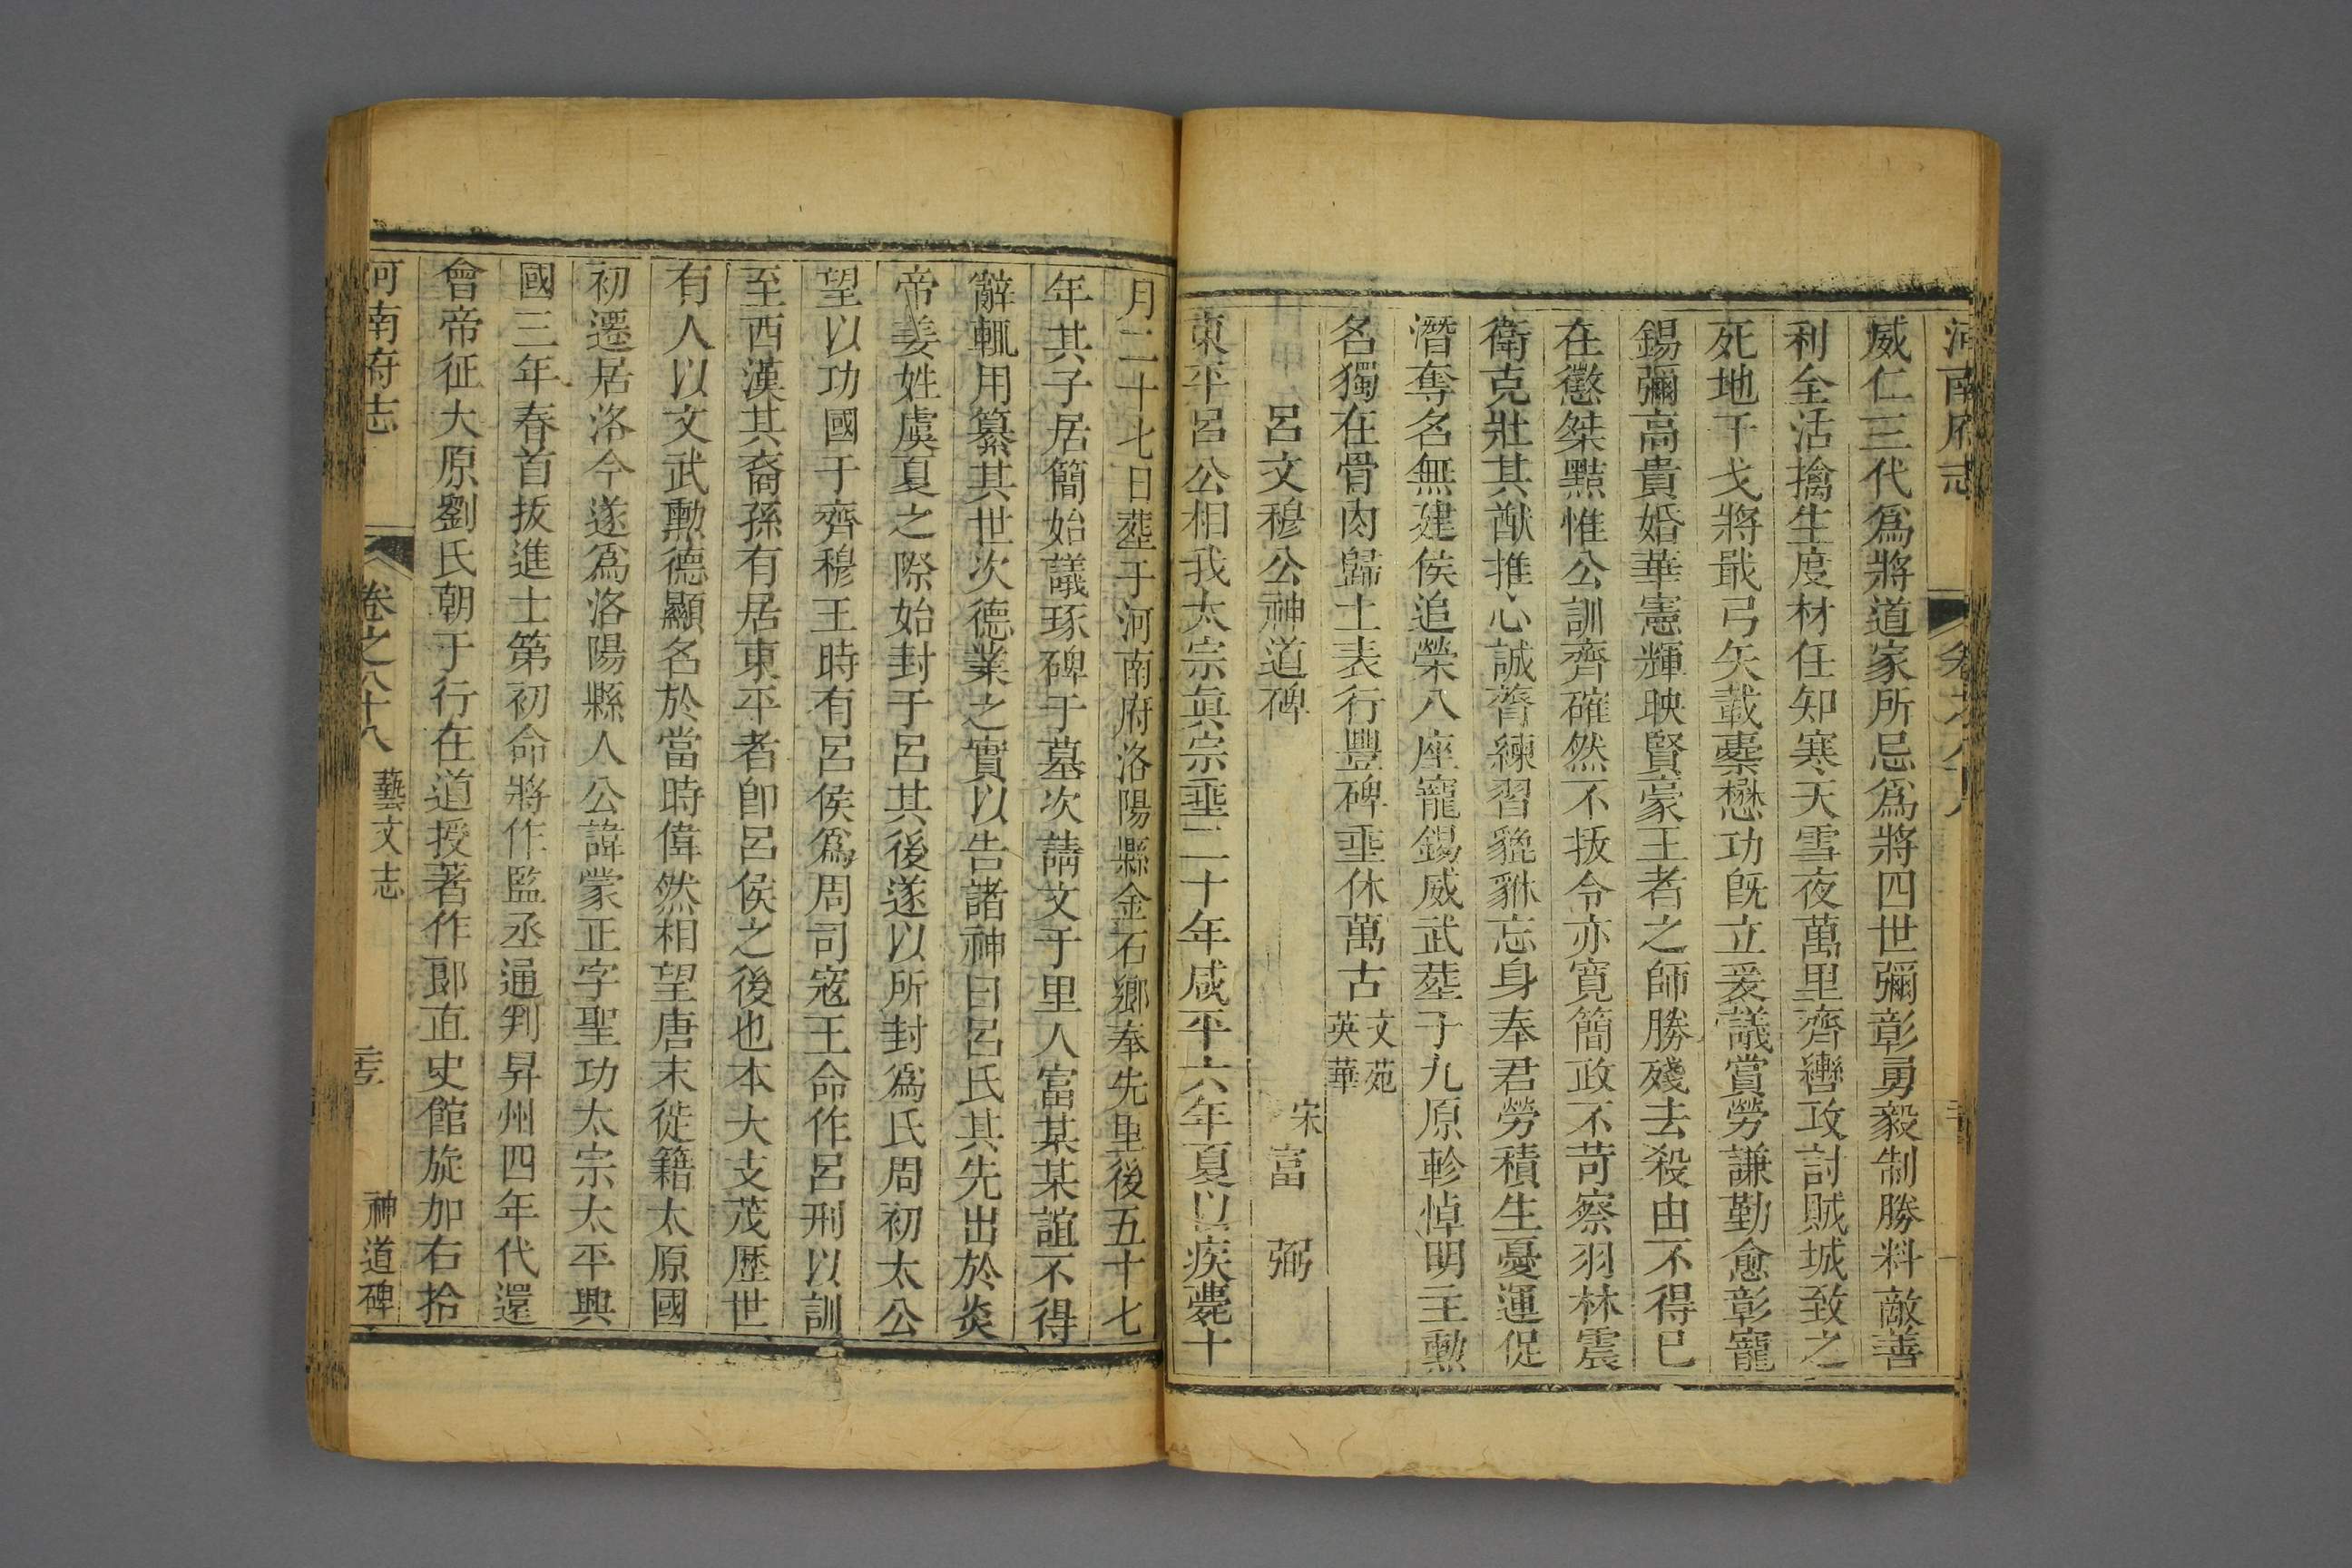 河南府志 卷之八十八
威仁三代爲將道家所忌爲將四世彌彰勇毅制勝料敵善
利全活擒生度材任知寒天雪夜萬里齊轡攻討賊城致之
死地干戈將戢弓矢載櫜懋功旣立爰議賞勞謙勤愈彰寵
錫彌高貴婚華憲輝映賢豪王者之師勝殘去殺由不得已
在懲桀黠惟公訓齊確然不拔令亦寬簡政不苛察羽林震
衛克壯其猷推心誠膂練習貔貅忘身奉君勞積生憂運促
潛奪名無建侯追榮八座寵錫威武塟于九原軫悼明主勲
名獨在骨肉歸土表行豐碑埀休萬古文苑英華
呂文穆公神道碑
宋富弼
東平呂公相我太宗眞宗埀二十年咸平六年夏以疾薨十
月二十七日塟于河南府洛陽縣金石鄉奉先里後五十七
年其子居簡始議琢碑于墓次請文于里人富某某誼不得
辭輒用纂其世次德業之實以告諸神曰呂氏其先出於炎
帝姜姓虞夏之際始封于呂其後遂以所封爲氏周初太公
望以功國于齊穆王時有呂侯爲周司寇王命作呂刑以訓
至西漢其裔孫有居東平者卽呂侯之後也本大支茂歷世
有人以文武勳德顯名於當時偉然相望唐末徙籍太原國
初遷居洛今遂爲洛陽縣人公諱蒙正字聖功太宗太平興
國三年春首拔進士第初命將作監丞通判昇州四年代還
會帝征大原劉氏朝于行在道授著作郎直史館旋加右拾
河南府志 卷之八十八 藝文志 神道碑